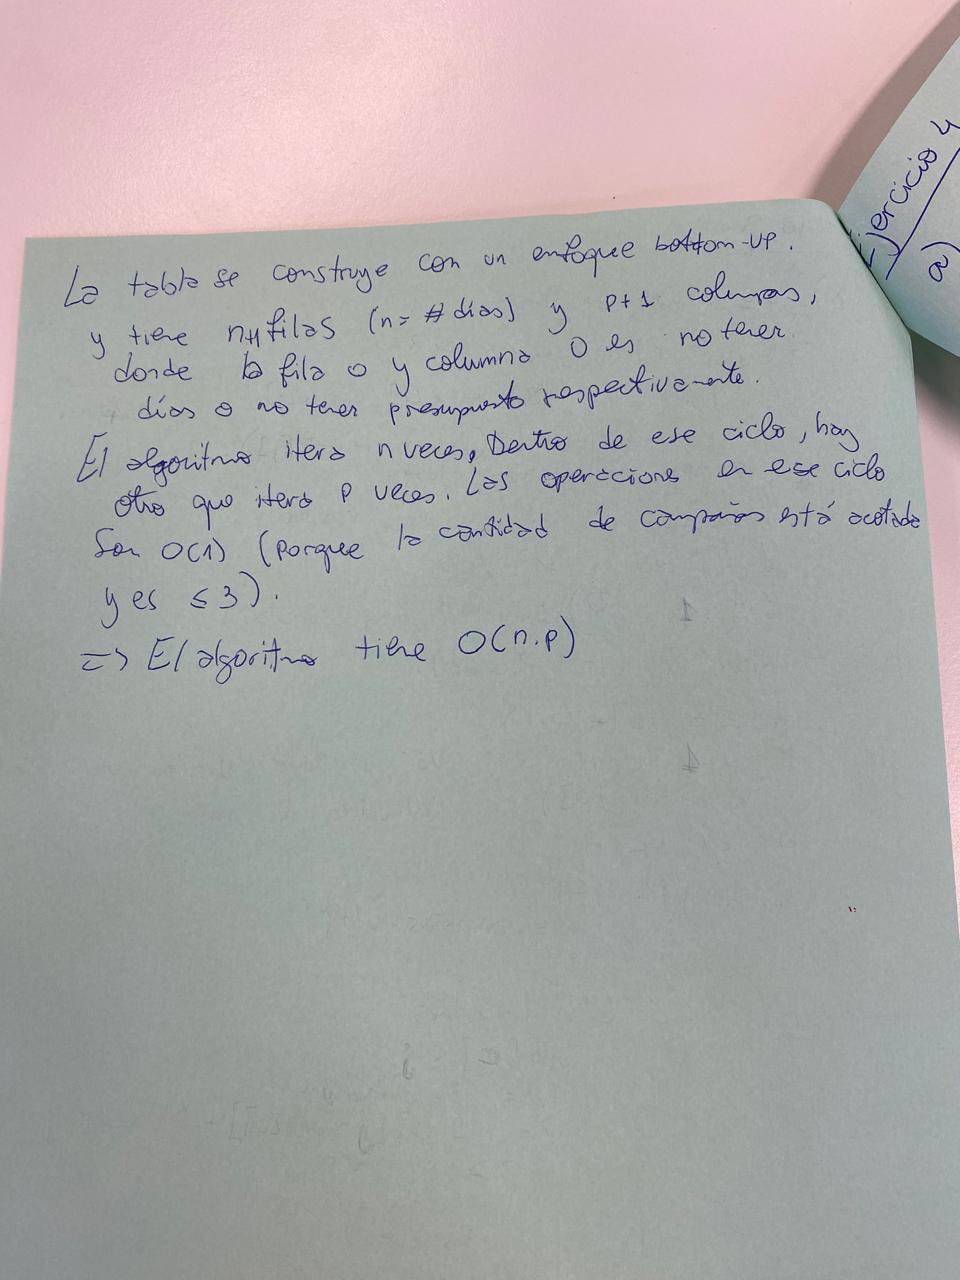 La tabla se construye con un enfoque bottom-up.
y tiene n+1 filas (n = # días) y p+1 columnas,
donde la fila 0 y columna 0 es no tener
días o no tener presupuesto respectivamente.
El algoritmo itera n veces, Dentro de ese ciclo, hay
otro que itera p veces. Las operaciones en ese ciclo
Son O(1) (porque la cantidad de campañas está acotada
y es ≤ 3).
=> El algoritmo tiene O(n.p)
Ejercicio 4
a)